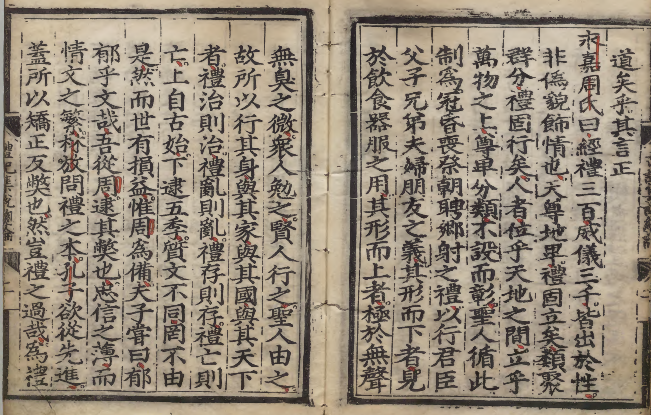 道矣乎其言正
永嘉周氏曰經禮三百威儀三千皆出於性
非僞貌飾情也天尊地卑禮固立矣類聚
群分禮固行矣人者位乎天地之間立乎
萬物之上尊卑分類不設而彰聖人循此
制爲冠昏喪祭朝聘鄉射之禮以行君臣
父子兄弟夫婦朋友之義其形而下者見
於飲食器服之用其形而上者極於無聲
無臭之微衆人勉之賢人行之聖人由之
故所以行其身與其家與其國與其天下
者禮治則治禮亂則亂禮存則存禮亡則
亡上自古始下逮五季質文不同罔不由
是然而世有損益惟周爲備夫子嘗曰郁
郁乎文哉吾從周逮其弊也忠信之薄而
情文之繁林放問禮之本孔子欲從先進
蓋所以矯正反弊也然豈禮之過哉爲禮